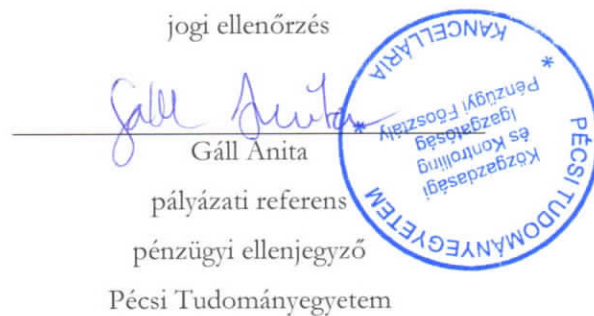 jogi ellenőrzés
Gáll Anita
Gáll Anita
pályázati referens
pénzügyi ellenjegyző
Pécsi Tudományegyetem
PÉCSI TUDOMÁNYEGYETEM
* KANCELLÁRIA *
Közgazdasági
és Kontrolling
Igazgatóság
Pénzügyi Főosztály